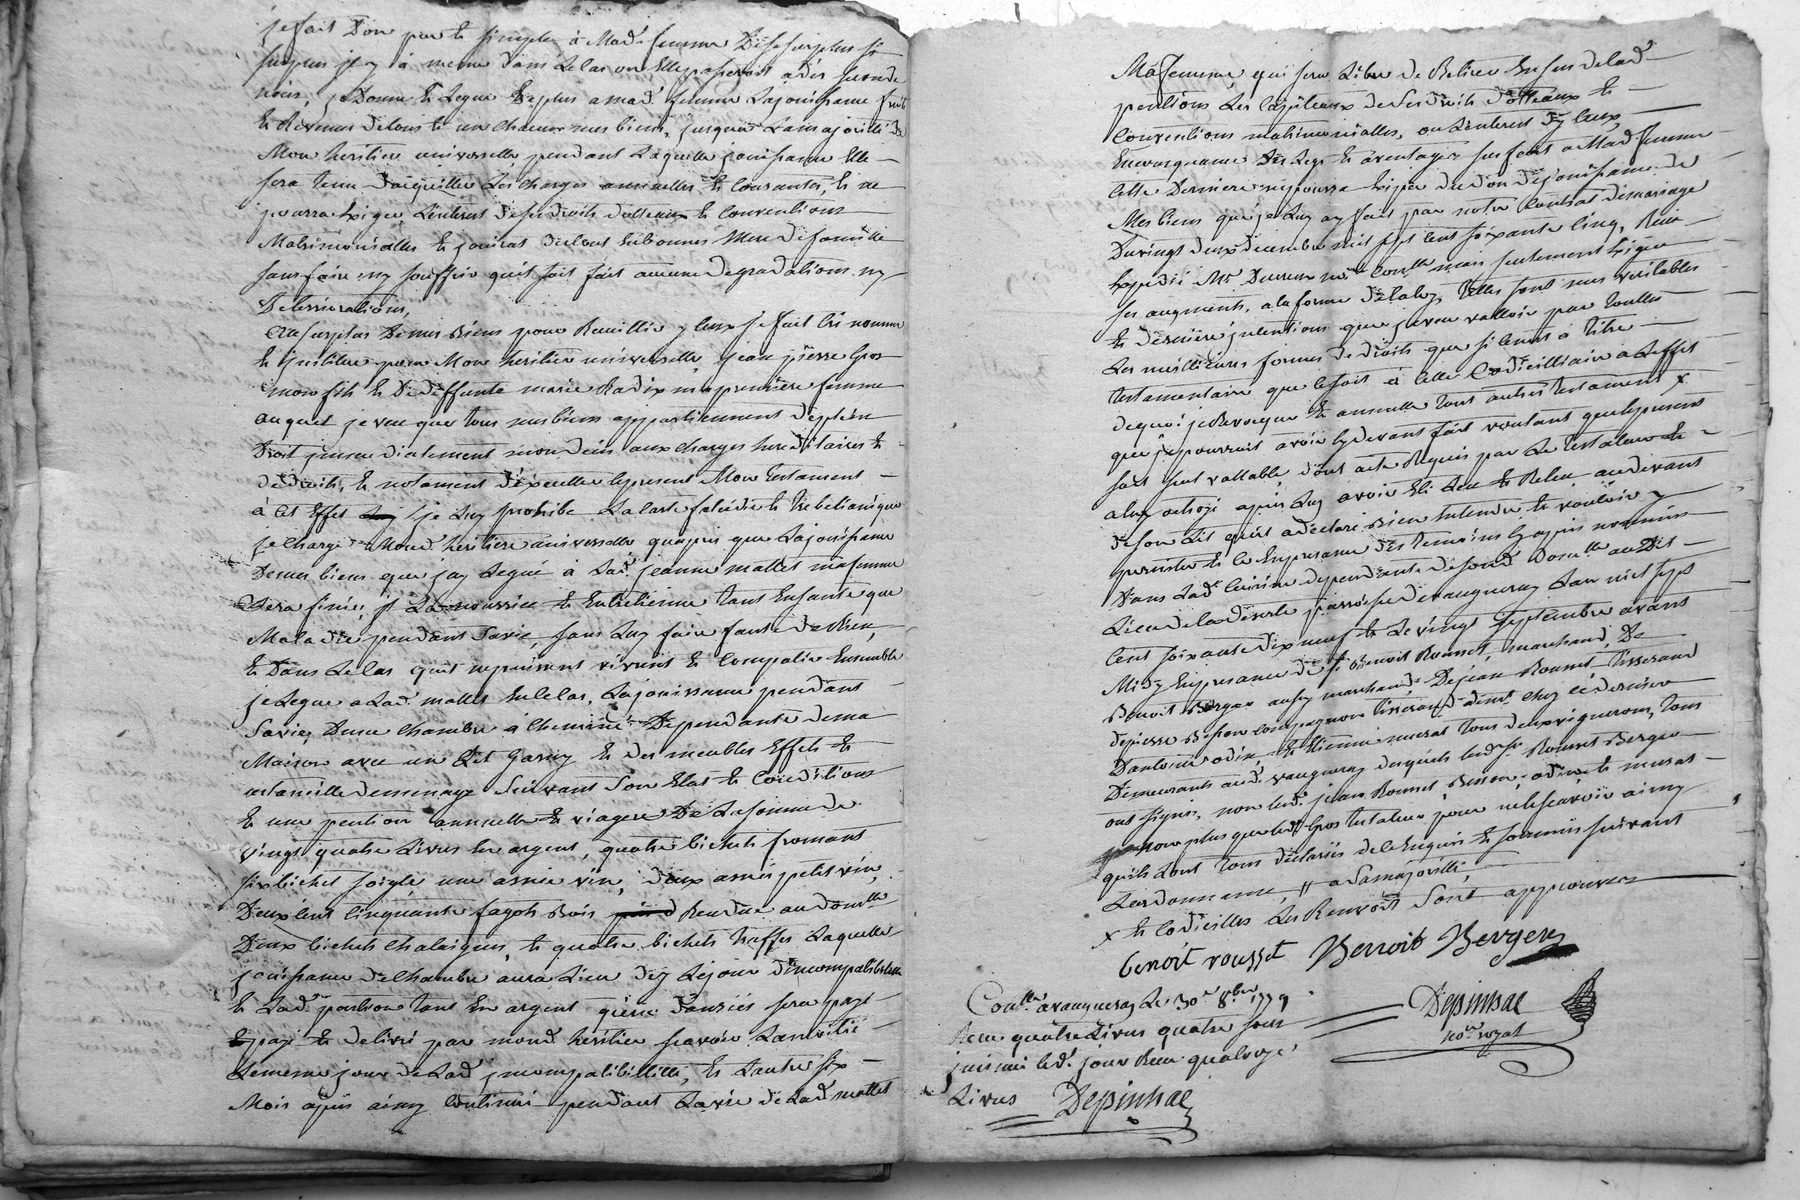 je fait Don pur et simple à Mad. femme Desesurplus si
surplus il y à meme dans le cas ou Elle passeroit adès seconde
noces, je Donne et Legue Deplus a mad. femme Lajouissance fruits
et Revenus detous et un chacun mes biens, jusqua Lamajorité de
Mon heritier universelle pendant Laquelle jouissance Elle
sera tenue daquitter Les charges annuelles et Courantes, et ne
pourra Exiger Linterest desesdroits dotteaux et Conventions
Matrimonialles et jouirat dutout Enbonnes Mere defamille
sans faire ny souffrir quil soit fait aucune degradations ny
Deteriorations,
Au surplus Demes Biens pour Recuillir y ceux je fait Cré nomme
et justitue pour Mon heritier universelle, jean pierre Gros
mon fils et De deffunte marie Radix ma première femme
auquel je veu que tous mes biens appartiennent depleïn
Droit jmmediatement mon decés aux charges hereditaires et
dedroits, et notament d'éxecuter lepresent Mon testament
à Cet Effet je Luy prohibe Lacarte falcidie et trebelianique
je charge Mond. heritier universelle quapres que Lajouissance
Demes biens que jay Legué à Lad. jeanne mallet mafemme
sera finie, jl La nourrice et Entretienne tant Ensante que
Maladie pendant Savie, sans Luy faire faute de Rien,
et Dans Le Cas quil nepuissent vivrent et Compatir Ensemble
je Legue a Lad. mallet Encecas, Lajouissance pendant
Savie, Dune chambre à cheminé Dépendante dema
Maison avec un Lit Garny et des meubles Effets et
ustancille demenage Suivant Son Etat et Conditions
et une pention annuelle et viagere De Lasomme de
vingt quatre Livres En argent, quatre bichets fromant
six bichet soigle une asnée vin, deux asnés petit vin,
Deuxcent cinquante fagots Bois Rendue audomlle
Deux bichets Chataignes, et quatre bichets truffes Laquelle
jouissance de chambre aura Lieu dez Lejour d'incompatibilité
et Lad. pention tant En argent quen danrées sera payé
et delivré par mond. héritier scavoir Lamoitié
Lememe jour de Lad. jncompatibillité, et Lautre six
Mois après ainsy Continué pendant Lavie de Lad. mallet
Mafemme qui sera Libre de Retirer Ensus delad.
pentions Les Capiteaux de Ses droits dotteaux et
Conventions matrimonialles, ou Linterest dy ceux,
Enconsequance Des Legs et aventages susfait a Mad. femme
Cette Derniere nepourra Exiger du don dejouissance de
Mes biens que je Luy ay fait par notre Contrat demariage
Du vingt deux decembre mil sept cent soixante cinq, Reçu
Expedié Me nore mais seulement Exiger
ses augments, alaforme delaloy, telles sont mes véritables
et dernière jntentions que jeveu valloir par toutte
Les meillieures formes de droits que sileurs à titre
testamentaire que cesoit à cette Codicilliaire a Leffet
dequoi je Revoque et annulle tout autres testament X
que je pourrois avoir cydevant fait voulant que lepresent
soit seul vallable, dont acte Requis par Le testateur et
aluy octroyé après Luy avoir Eté Leu et Releu audevant
deson Lit quil a declaré Bien Entendre et vouloir y
persister et ce Enpresance des temoins Cyapres nommés
Dans Lad. Cuisine dependante desond. domlle audit
Lieu dela parroisse devaugneray Lan mil sept
cent soixante dix neuf et Le vingt septembre avant
Midy Enpresance de Sr Benoit Rousset, marchand, De
Benoit Berger aussy marchand, Dejean Rousset tisserand
depierre Besson compagnon tisserand dmt chez cé dernier
Dantoine odin, et Etienne murat tous deux vignerons, tous
Demeurants aud. vaugneray desquels lesdts Srs Rousset Berger
ont signés, non lesd. jean Rousset Besson odin et murat
non plus queledt Gros testateur pour nelescavoir ainsy
quils Lont tous déclarés de ce Enquis et sommés suivant
Lordonnance, // a Samajorité,
X et codicilles Les Renvois sont approuvez
benoit rousset Benoit Berger
Depinhac
nore royal
Conlle avaugneray Le 30e 8bre 1779
Reçu quatre Livres quatre sous
jnsinué led. jour Reçu quatorze
Livres Depinhac